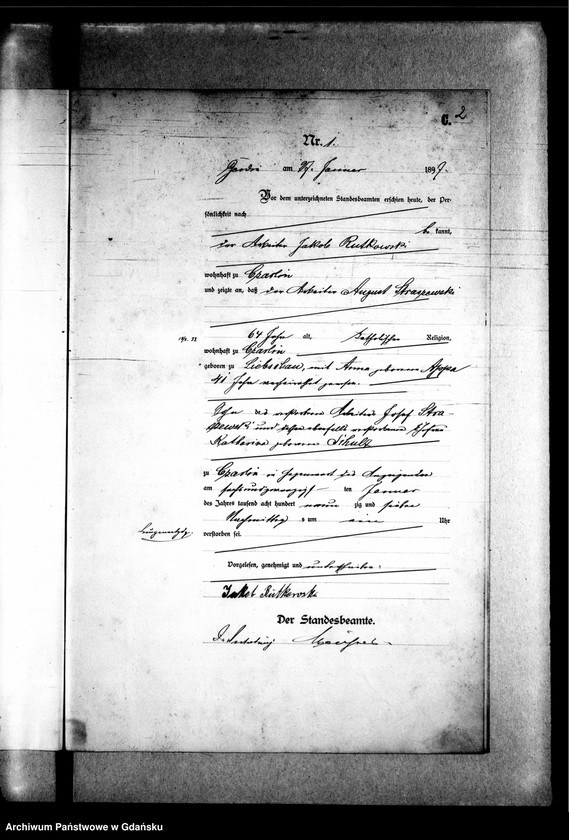 C. 2
Nr. 1.
am 27. Januar 1897.
Vor dem unterzeichneten Standesbeamten erschien heute, der Per-
sönlichkeit nach
be kannt,
der Arbeiter Jakob Rutkowski
wohnhaft zu Czarlin
und zeigte an, daß der Arbeiter August
64 Jahr alt, katholischer Religion,
wohnhaft zu Czarlin
geboren zu Liebschau, mit Anna geborenen
41 Jahr verheirathet gewesen
Sohn des verstorbenen Arbeiters Josef Stra-
und dessen ebenfalls verstorbenen Ehefrau
Katharina geborenen Schulz
zu Czarlin in Gegenwart des Anzeigenden
am sechsundzwanzigsten Januar
des Jahres tausend acht hundert neun zig und sieben
Nachmittags um ein Uhr
verstorben sei.
Vorgelesen, genehmigt und unterschrieben:
Jakob Rutkowski
Der Standesbeamte.
Archiwum Państwowe w Gdańsku